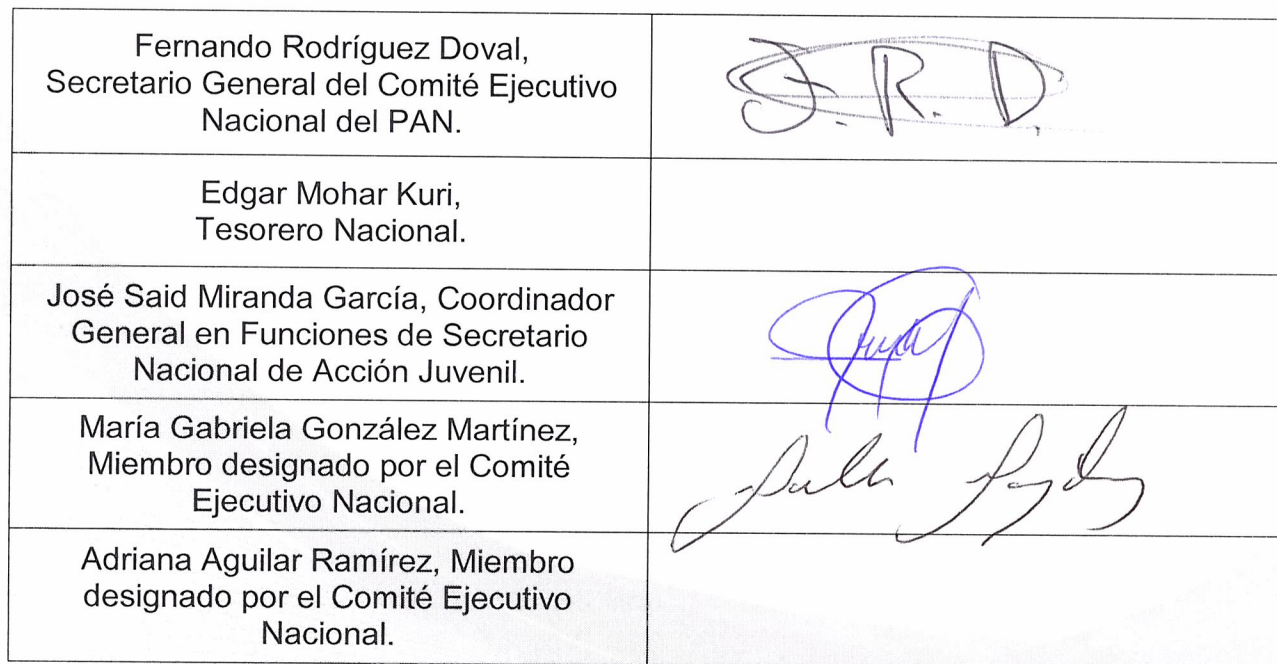 Fernando Rodríguez Doval,
Secretario General del Comité Ejecutivo
Nacional del PAN.
J. R. D.
Edgar Mohar Kuri,
Tesorero Nacional.
José Said Miranda García, Coordinador
General en Funciones de Secretario
Nacional de Acción Juvenil.
María Gabriela González Martínez,
Miembro designado por el Comité
Ejecutivo Nacional.
Adriana Aguilar Ramírez, Miembro
designado por el Comité Ejecutivo
Nacional.